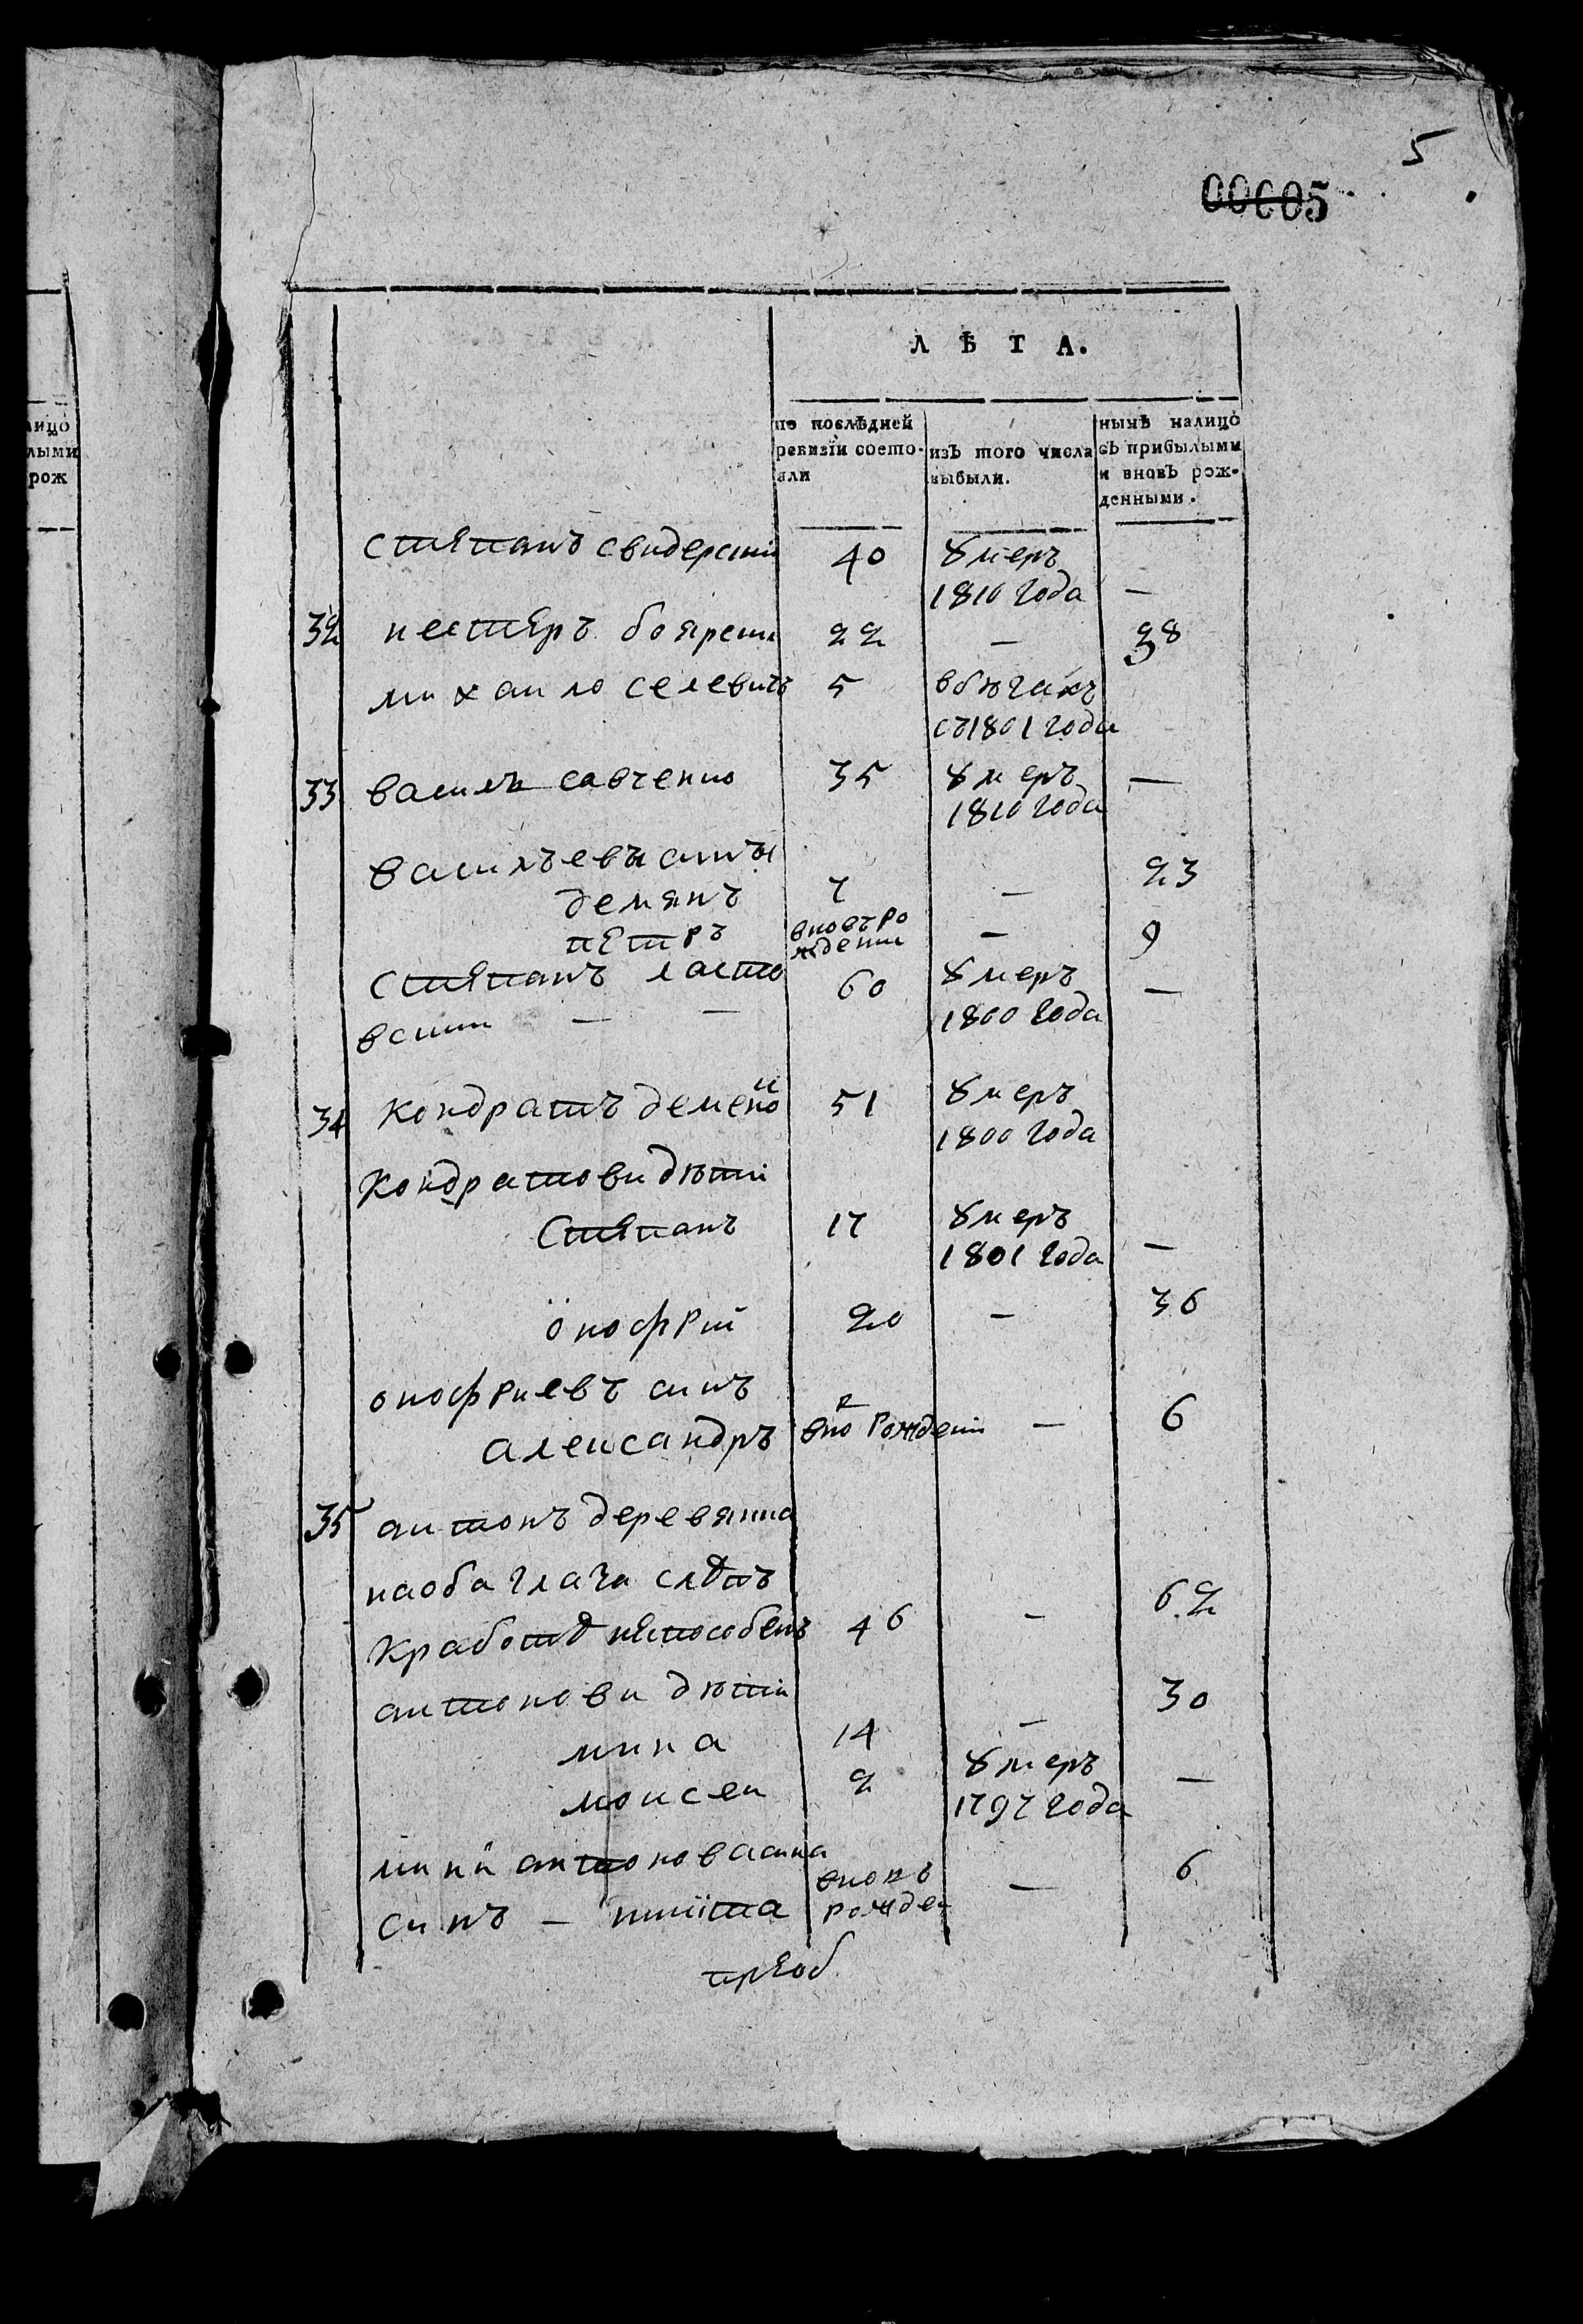 5
00005
ЛѢТА.
по послѣдней ревизіи состояли
изъ того числа выбыли.
нынѣ налицо съ прибылыми и вновь рожденными.
лицо
лыми
рож
степанъ свидерски 40 умеръ
1810 года —
32 нестеръ боярски 22 — 38
михаило селевичъ 5 вбѣгахъ
съ 1801 года
33 василь савченко 35 умеръ —
1810 года
василъевы сины 23
демянъ 7 —
петръ вновъ рождени — 9
степанъ ласто 60 умеръ —
вски — — 1800 года
34 кондратъ деменко 51 умеръ
1800 года
кондратови дѣти
степанъ 17 умеръ
1801 года —
онофрій 20 — 36
онофриевъ синъ
александръ вно рождени — 6
35 антонъ деревянко
наоба глаза слѣпъ 62
кработѣ неспособенъ 46 —
антонови дѣти 30
мина 14 —
моисеи 2 умеръ —
1797 года
мини антонова сина
синъ — никита вновъ рожден — 6